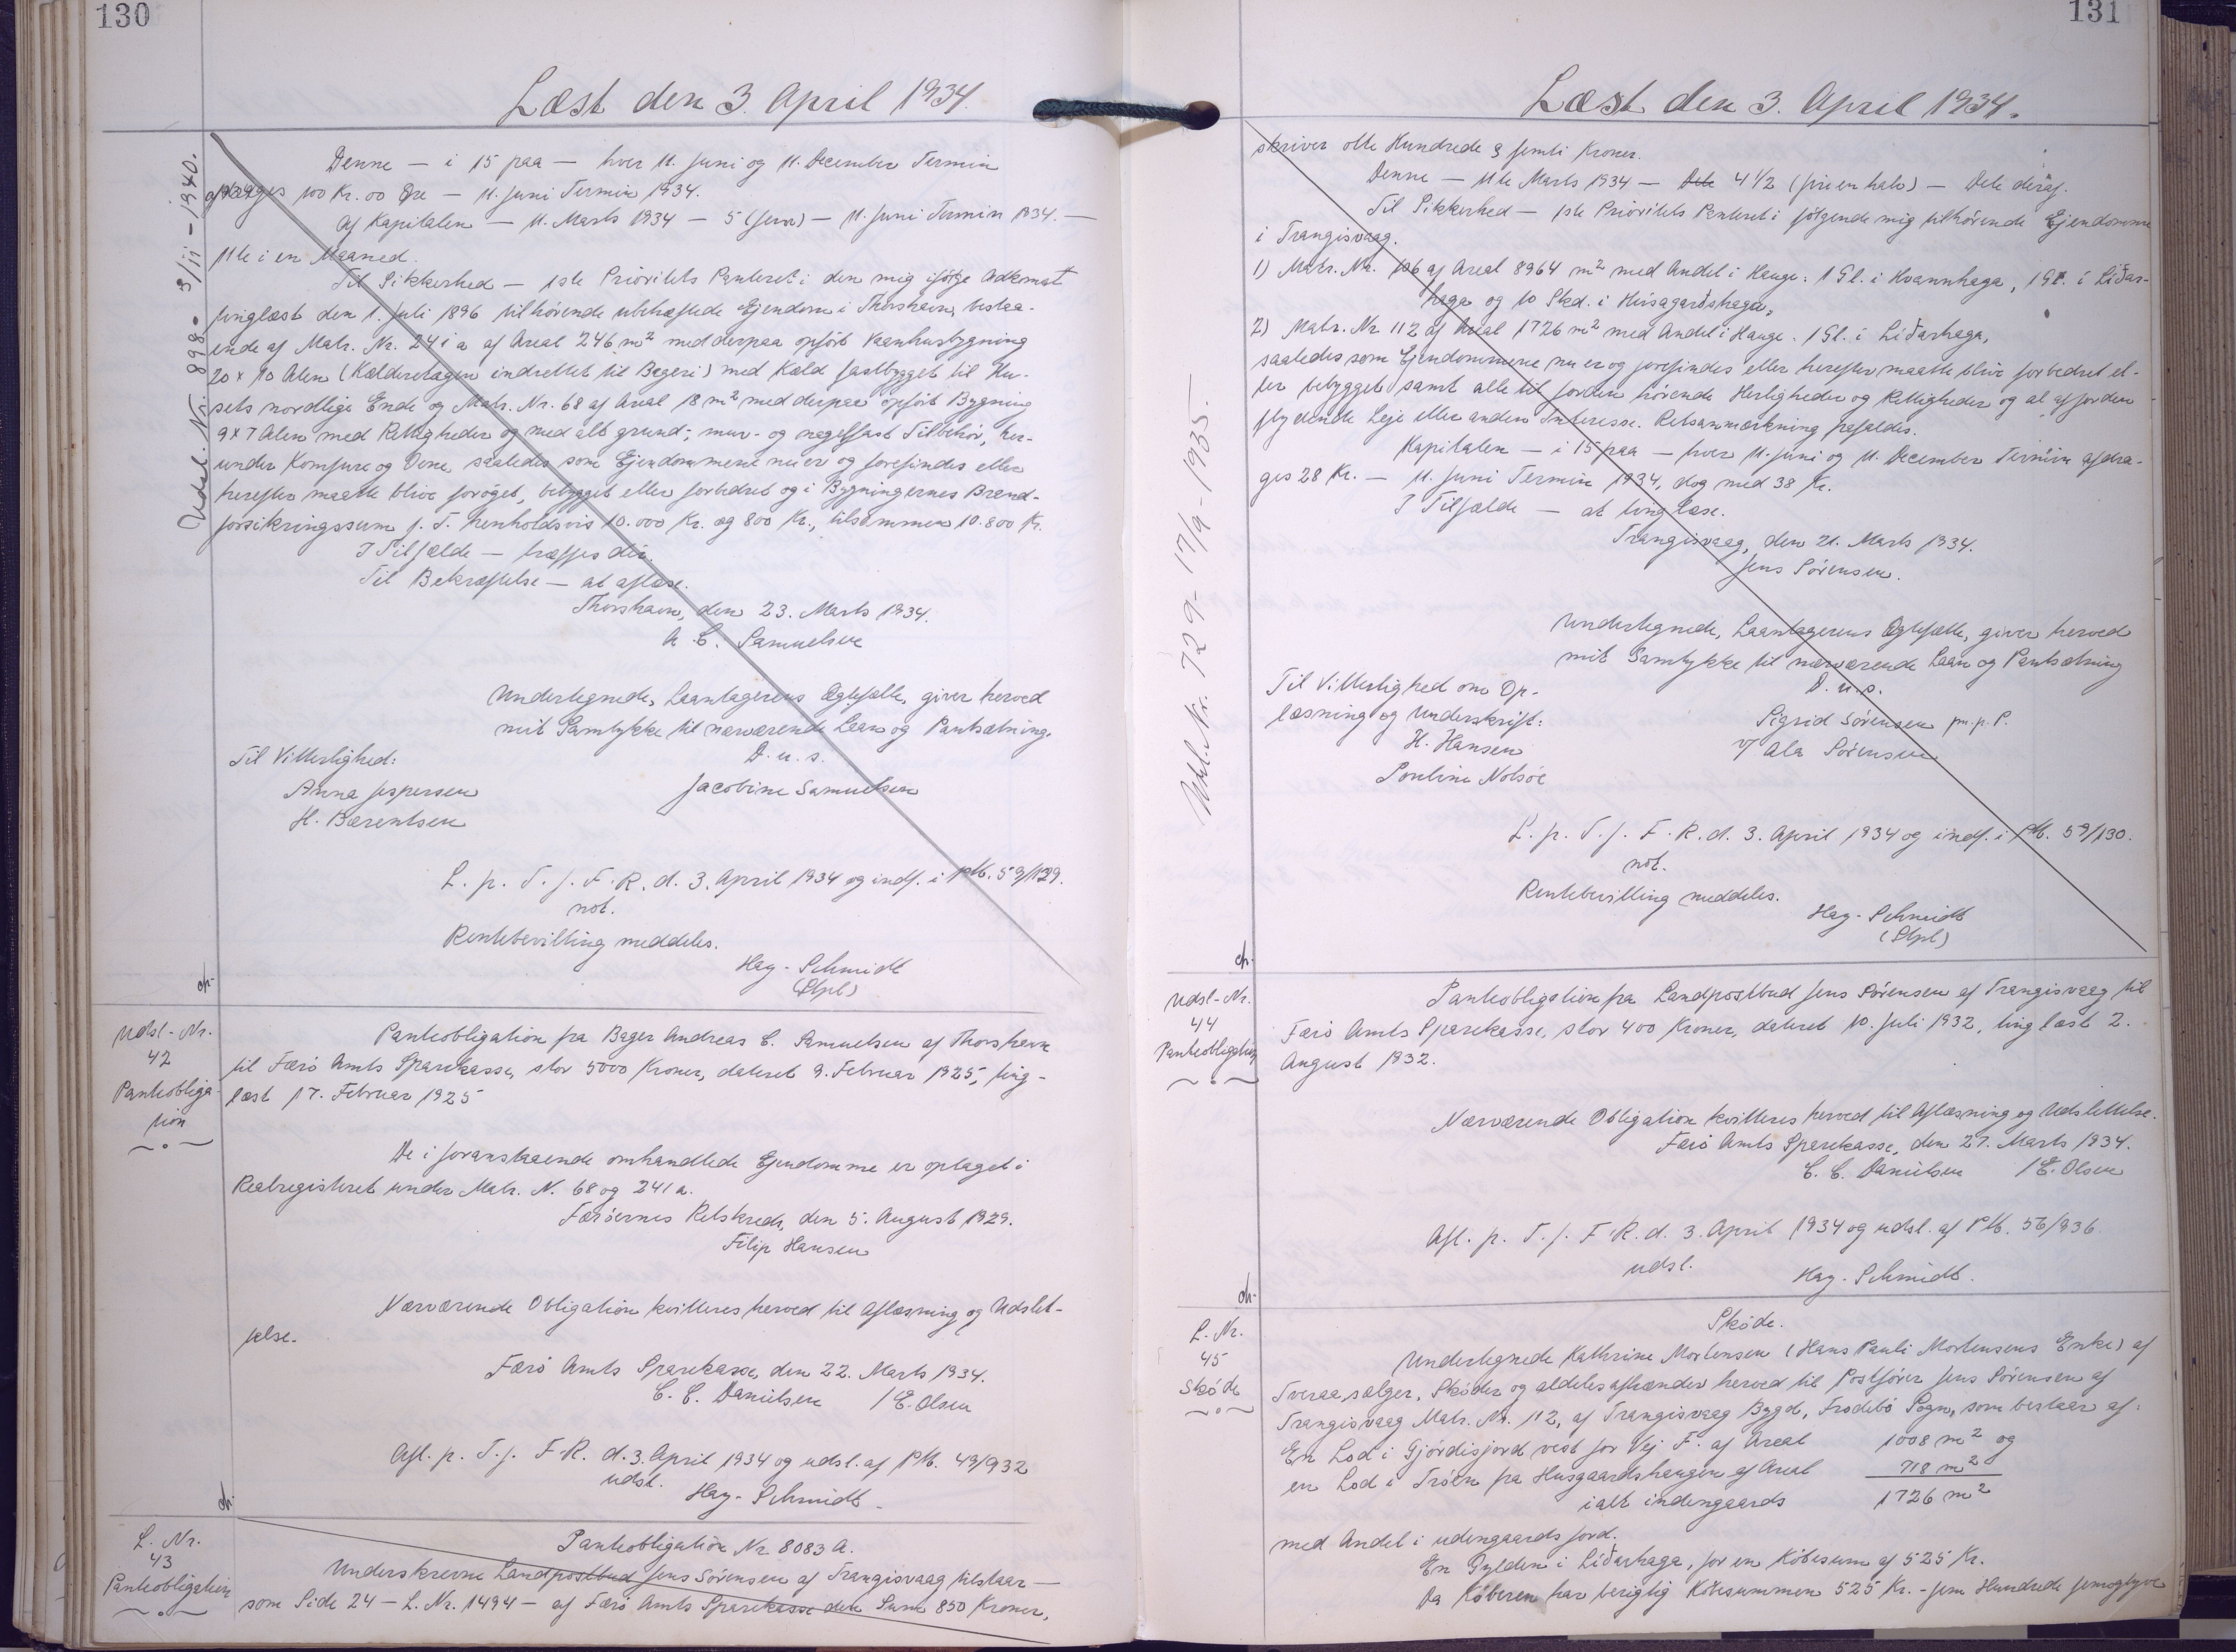 130
Læst den 3. April 1934.
Udsl. Nr. 898 - 5/11 - 1940.
Denne — i 15 paa — hver 11. Juni og 11. December Termin
afdrages 100 Kr. 00 Øre — 11. Juni Termin 1934.
Af Kapitalen — 11. Marts 1934 — 5 (fem) — 11. Juni Termin 1934. —
11te i en Maaned.
Til Sikkerhed — 1ste Prioritets Panteret i den mig ifølge Adkomst
tinglæst den 1. Juli 1896 tilhörende ubehæftede Ejendom i Thorshavn, bestaa-
ende af Matr. Nr. 241a af Areal 246 m² med derpaa opfört Vaanhusbygning
20 x 10 Alen (Kælderetagen indrettet til Bageri) med Kæld fastbygget til Hu-
sets nordlige Ende og Matr. Nr. 68 af Areal 18 m² med derpaa opfört Bygning
9 x 7 Alen med Rettigheder og med alt grund-, mur- og nagelfast Tilbehör, her-
under Komfure og Ovne, saaledes som Ejendommene nu er og forefindes eller
herefter maatte blive foröget, bebygget eller forbedret og i Bygningernes Brand-
forsikringssum p. T. henholdsvis 10.000 Kr. og 800 Kr., tilsammen 10.800 Kr.
I Tilfælde — træffes dér.
Til Bekræftelse — at aflæse.
Thorshavn, den 23. Marts 1934.
A. C. Samuelsen
Undertegnede, Laantagerens Ægtefælle, giver herved
mit Samtykke til nærværende Laan og Pantsætning.
Til Vitterlighed:
D. u. s.
Anna Jespersen
Jacobine Samuelsen
H. Bærentsen
L. p. T. f. F. R. d. 3. April 1934 og indf. i PM. 59/129.
not.
Rentebevilling meddeles.
Hay-Schmidt
(Stpl)
Udsl-Nr.
42
Panteobliga-
tion
Panteobligation fra Bager Andreas C. Samuelsen af Thorshavn
til Færö Amts Sparekasse, stor 5000 Kroner, dateret 9. Februar 1925, ting-
læst 17. Februar 1925
De i foranstaaende omhandlede Ejendomme er optaget i
Realregisteret under Matr. N. 68 og 241a.
Færöernes Retskreds, den 5. August 1929.
Filip Hansen
Nærværende Obligation kvitteres herved til Aflæsning og Udslet-
telse.
Færö Amts Sparekasse, den 22. Marts 1934.
C. C. Danielsen / E. Olsen
Afl. p. T. f. F. R. d. 3. April 1934 og udsl. af PM. 49/932
udsl.
Hay-Schmidt.
L. Nr.
43
Panteobligation
Panteobligation Nr. 8083 A.
Underskrevne Landpostbud Jens Sörensen af Trangisvaag tilstaar —
som Side 24 — L. Nr. 1494 — af Færö Amts Sparekasse den Sum 850 Kroner,
131
Læst den 3. April 1934.
Udsl. Nr. 729 - 17/9 - 1935.
skriver otte Hundrede & femti Kroner.
Denne — 11te Marts 1934 — Dele 4 1/2 (fire en halv) — Dele deraf.
Til Sikkerhed — 1ste Prioritets Panteret i følgende mig tilhörende Ejendomme
i Trangisvaag.
1) Matr. Nr. 106 af Areal 8964 m² med Andel i Hauge: 1 Gl. i Hvannhaga, 1 Gl. i Liðar-
haga og 10 Skd. i Húsagarðshaga,
2) Matr. Nr 112 af Areal 1726 m² med Andel i Hauge. 1 Gl. i Liðarhaga,
saaledes som Ejendommene nu er og forefindes eller herefter maatte blive forbedret el-
ler bebygget samt alle til Jorden hörende Herligheder og Rettigheder og al af Jorden
flydende Leje eller anden Interesse. Retsanmærkning frafaldes.
Kapitalen — i 15 paa — hver 11. Juni og 11. December Termin afdra-
ges 28 Kr. — 11. Juni Termin 1934, dog med 38 Kr.
I Tilfælde — at tinglæse.
Trangisvaag, den 21. Marts 1934.
Jens Sörensen.
Undertegnede, Laantagerens Ægtefælle, giver herved
mit Samtykke til nærværende Laan og Pantsætning
Til Vitterlighed om Op-
læsning og Underskrift:
D. u. s.
Sigrid Sörensen m. p. P.
H. Hansen
v/ Ala Sörensen
Pouline Nolsöe
L. p. T. f. F. R. d. 3. April 1934 og indf. i PM. 59/130.
not.
Rentebevilling meddeles.
Hay-Schmidt
(Stpl)
Udsl-Nr.
44
Panteobligation
Panteobligation fra Landpostbud Jens Sörensen af Trangisvaag til
Færö Amts Sparekasse, stor 400 Kroner, dateret 10. Juli 1932, tinglæst 2.
August 1932.
Nærværende Obligation kvitteres herved til Aflæsning og Udslettelse.
Færö Amts Sparekasse, den 27. Marts 1934.
C. C. Danielsen / E. Olsen
Afl. p. T. f. F. R. d. 3. April 1934 og udsl. af PM. 56/936.
udsl.
Hay-Schmidt.
L. Nr.
45
Sköde
Sköde.
Undertegnede Kathrine Mortensen (Hans Pauli Mortensens Enke) af
Tveraa, sælger, Sköder og aldeles afhænder herved til Postförer Jens Sörensen af
Trangisvaag Matr. Nr. 112, af Trangisvaag Bygd, Frodebö Sogn, som bestaar af:
En Lod i Gjördisjord vest for Vej F. af Areal 1008 m² og
en Lod i Tröen fra Husgaardshaugen af Areal 718 m²
ialt indengaards 1726 m²
med Andel i udengaards Jord.
En Gylden i Liðarhaga, for en Köbesum af 525 Kr.
Da Köberen har berigtig Köbesummen 525 Kr. - fem Hundrede femogtyve